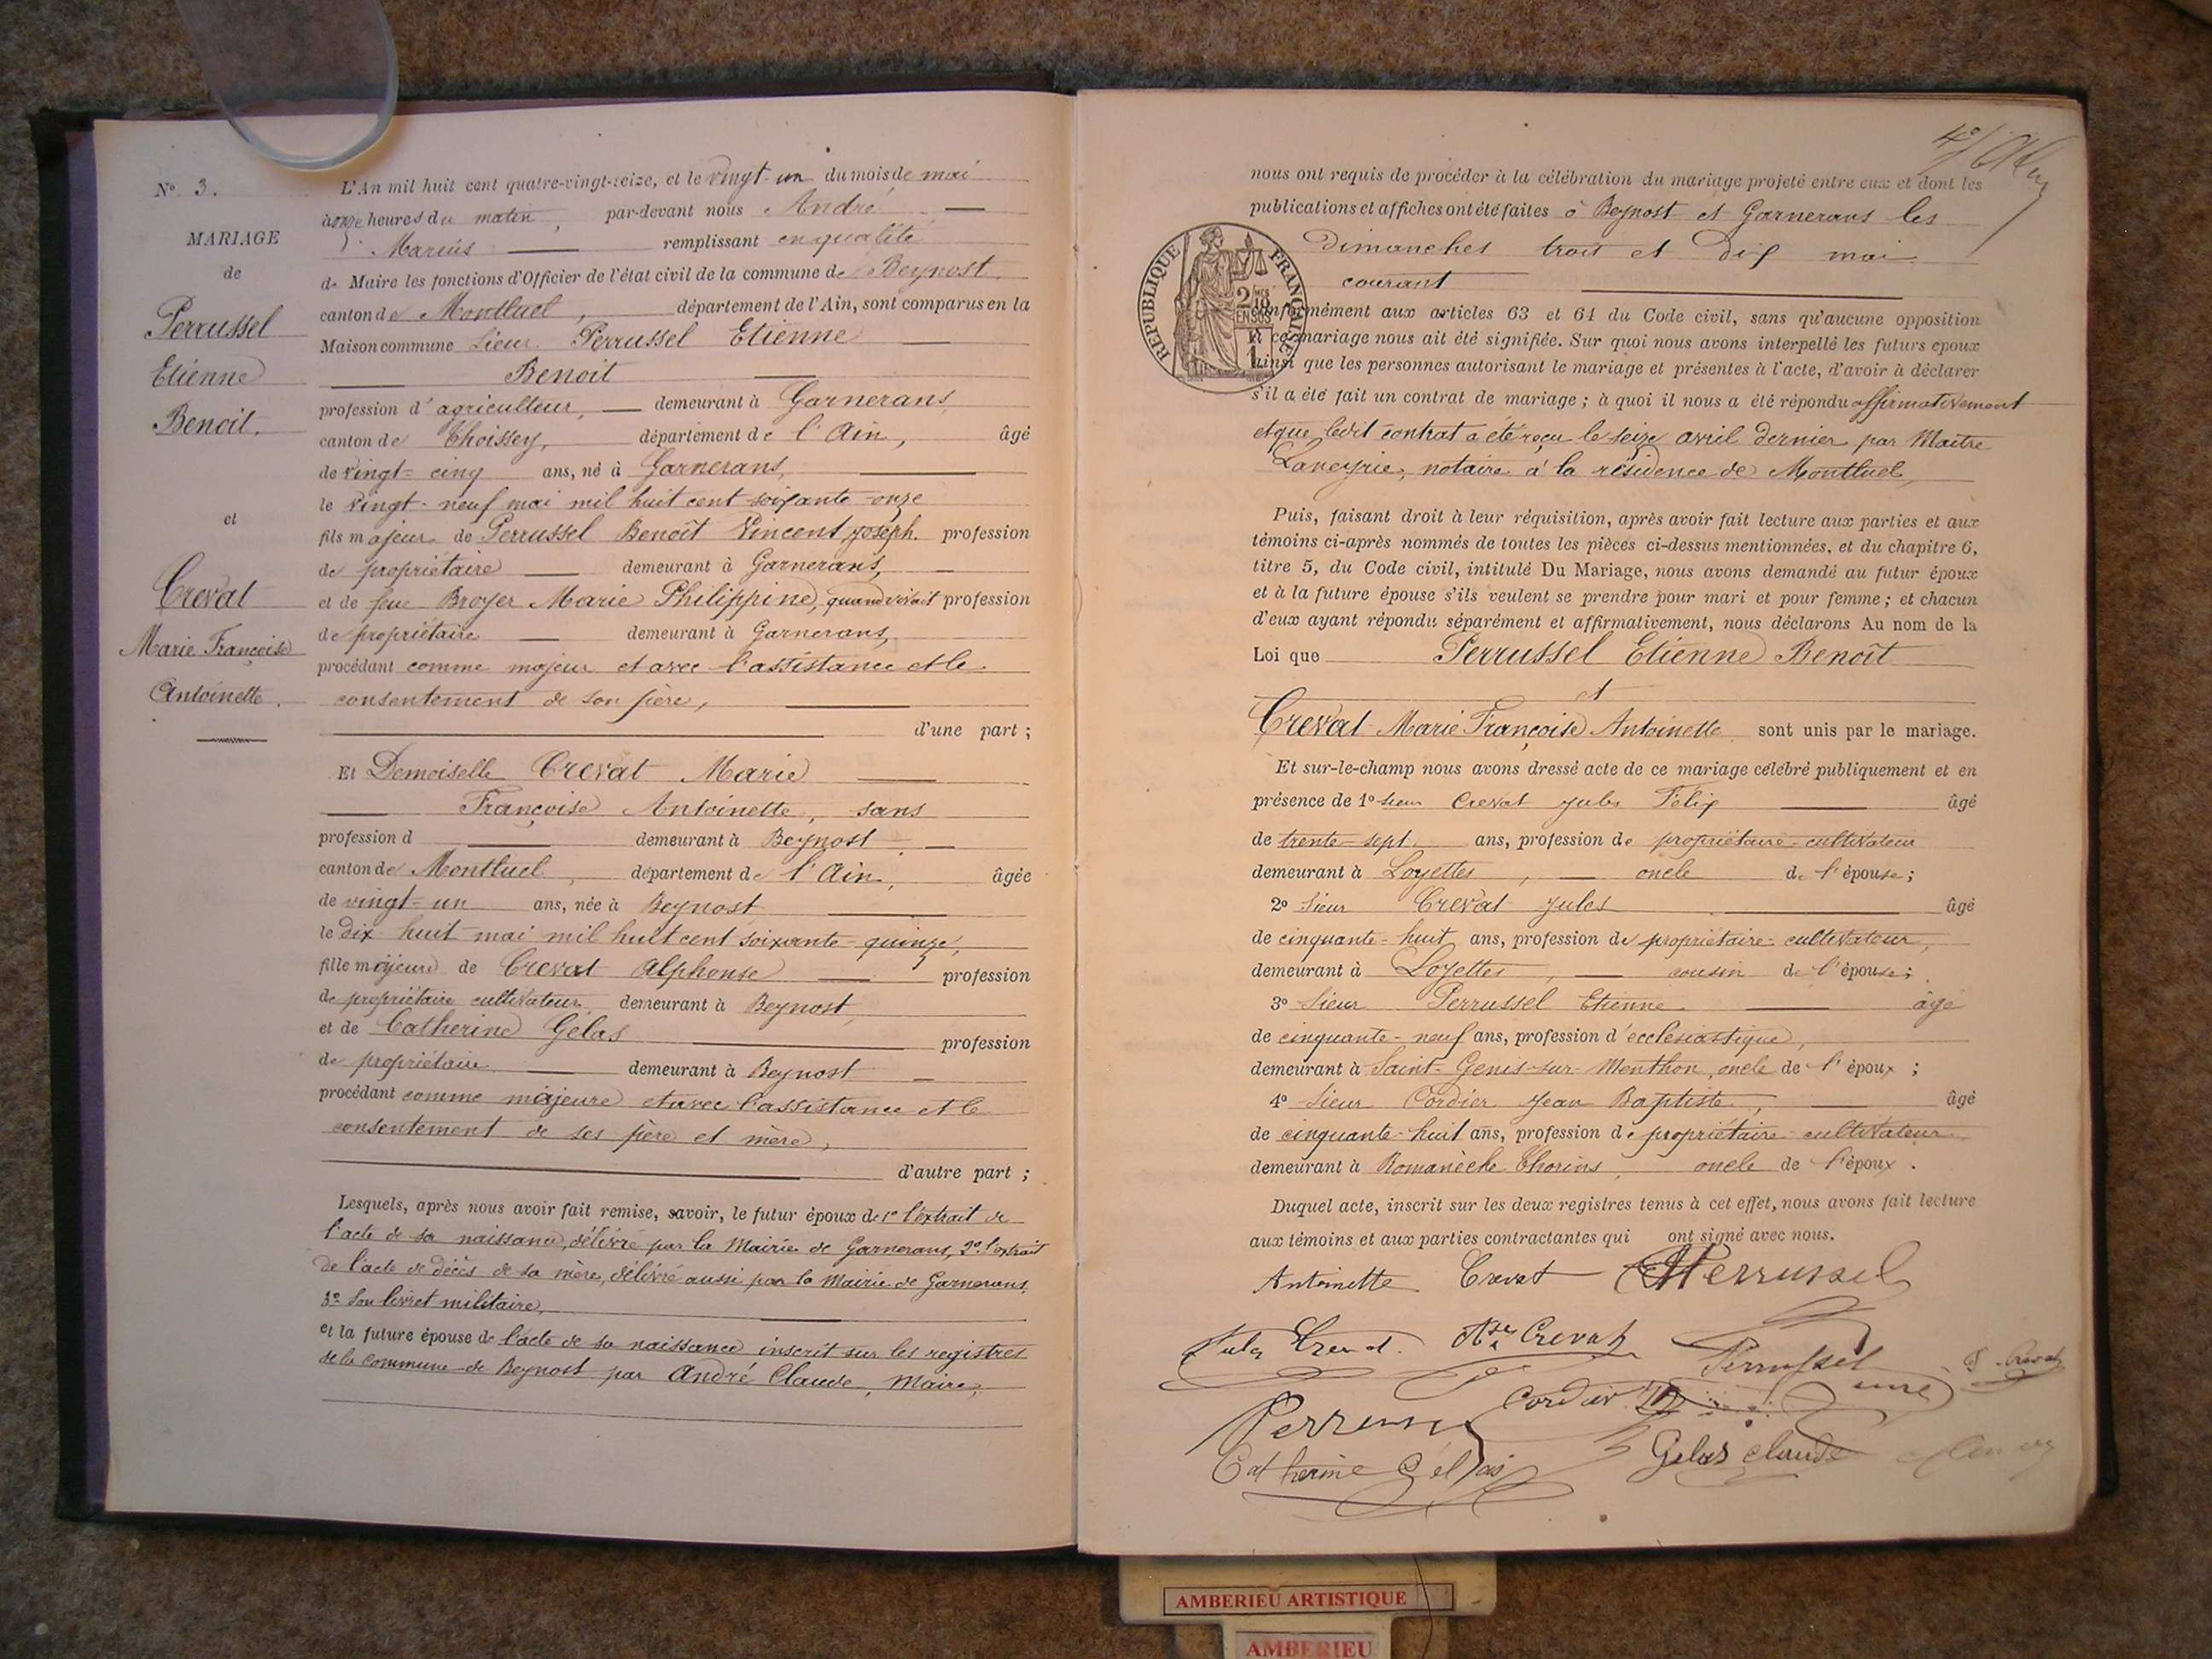 N° 3.
MARIAGE
de
Perrussel
Etienne
Benoit.
et
Crevat
Marie Françoise
Antoinette.
L'An mil huit cent quatre-vingt-seize, et le vingt-un du mois de mai
à onze heures du matin, par-devant nous André
Marius remplissant en qualité
de Maire les fonctions d'Officier de l'état civil de la commune de Beynost
canton de Montluel, département de l'Ain, sont comparus en la
Maison commune Sieur Perrussel Etienne
Benoit
profession d'agriculteur, demeurant à Garnerans
canton de Thoissey, département de l'Ain, âgé
de vingt-cinq ans, né à Garnerans,
le vingt-neuf mai mil huit cent soixante-onze
fils majeur de Perrussel Benoît Vincent Joseph. profession
de propriétaire demeurant à Garnerans,
et de feue Broyer Marie Philippine, quand vivait profession
de propriétaire demeurant à Garnerans,
procédant comme majeur et avec l'assistance et le
consentement de son père,
d'une part ;
Et Demoiselle Crevat Marie
Françoise Antoinette, sans
profession d demeurant à Beynost
canton de Montluel, département de l'Ain, âgée
de vingt-un ans, née à Beynost
le dix-huit mai mil huit cent soixante-quinze,
fille majeure de Crevat Alphonse profession
de propriétaire cultivateur demeurant à Beynost,
et de Catherine Gélas profession
de propriétaire demeurant à Beynost
procédant comme majeure et avec l'assistance et le
consentement de ses père et mère,
d'autre part ;
Lesquels, après nous avoir fait remise, savoir, le futur époux de 1° l'extrait de
l'acte de sa naissance, délivré par la Mairie de Garnerans, 2° l'extrait
de l'acte de décès de sa mère, délivré aussi par la Mairie de Garnerans,
3° Son livret militaire,
et la future épouse de l'acte de sa naissance inscrit sur les registres
de la commune de Beynost par André Claude, Maire,
nous ont requis de procéder à la célébration du mariage projeté entre eux et dont les
publications et affiches ont été faites à Beynost et Garnerans les
Dimanches trois et dix mai
courant
RÉPUBLIQUE FRANÇAISE
conformément aux articles 63 et 64 du Code civil, sans qu'aucune opposition
à ce mariage nous ait été signifiée. Sur quoi nous avons interpellé les futurs époux
ainsi que les personnes autorisant le mariage et présentes à l'acte, d'avoir à déclarer
s'il a été fait un contrat de mariage ; à quoi il nous a été répondu affirmativement
et que ledit contrat a été reçu le seize avril dernier par Maître
Laneyrie, notaire à la résidence de Montluel,
Puis, faisant droit à leur réquisition, après avoir fait lecture aux parties et aux
témoins ci-après nommés de toutes les pièces ci-dessus mentionnées, et du chapitre 6,
titre 5, du Code civil, intitulé Du Mariage, nous avons demandé au futur époux
et à la future épouse s'ils veulent se prendre pour mari et pour femme ; et chacun
d'eux ayant répondu séparément et affirmativement, nous déclarons Au nom de la
Loi que Perrussel Etienne Benoît
et
Crevat Marie Françoise Antoinette sont unis par le mariage.
Et sur-le-champ nous avons dressé acte de ce mariage célébré publiquement et en
présence de 1° Sieur Crevat Jules Félix âgé
de trente-sept ans, profession de propriétaire-cultivateur
demeurant à Loyettes, oncle de l'épouse ;
2° Sieur Crevat Jules âgé
de cinquante-huit ans, profession de propriétaire-cultivateur,
demeurant à Loyettes, cousin de l'épouse ;
3° Sieur Perrussel Etienne âgé
de cinquante-neuf ans, profession d'ecclésiastique,
demeurant à Saint-Genis-sur-Menthon, oncle de l'époux ;
4° Sieur Cordier Jean Baptiste, âgé
de cinquante-huit ans, profession de propriétaire-cultivateur
demeurant à Romanèche Thorins, oncle de l'époux.
Duquel acte, inscrit sur les deux registres tenus à cet effet, nous avons fait lecture
aux témoins et aux parties contractantes qui ont signé avec nous.
Antoinette Crevat Perrussel
Jules Crevat. Crevat Perrussel
curé
Cordier
Perrussel
Catherine Gélas Gelas claude
AMBERIEU ARTISTIQUE
AMBERIEU